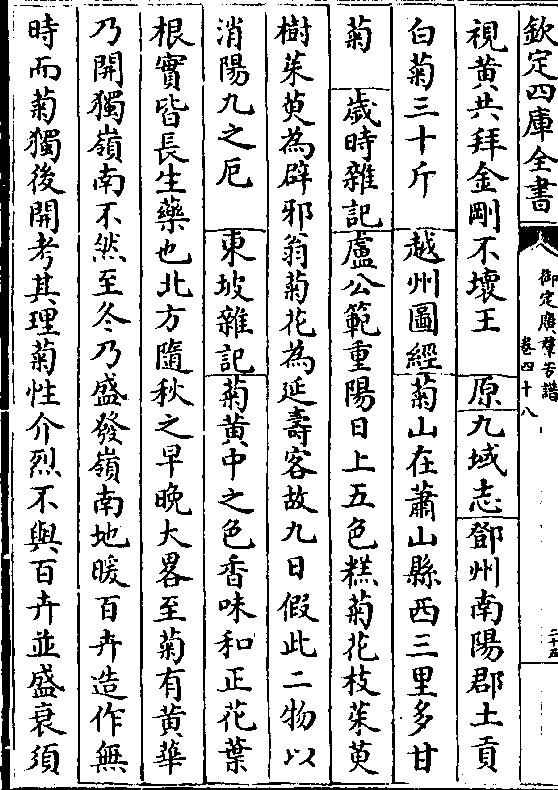 欽定四庫全書
御定廣羣芳譜
卷四十八
二十五
視黄共拜金剛不壞王 原 九域志 鄧州南陽郡土貢
白菊三十斤 越州圖經 菊山在蕭山縣西三里多甘
菊 歲時雜記 盧公範重陽日上五色糕菊花枝茱萸
樹茱萸為辟邪翁菊花為延壽客故九日假此二物以
消陽九之厄 東坡雜記 菊黄中之色香味和正花葉
根實皆長生藥也北方隨秋之早晚大畧至菊有黄華
乃開獨嶺南不然至冬乃盛發嶺南地暖百卉造作無
時而菊獨後開考其理菊性介烈不與百卉並盛衰須